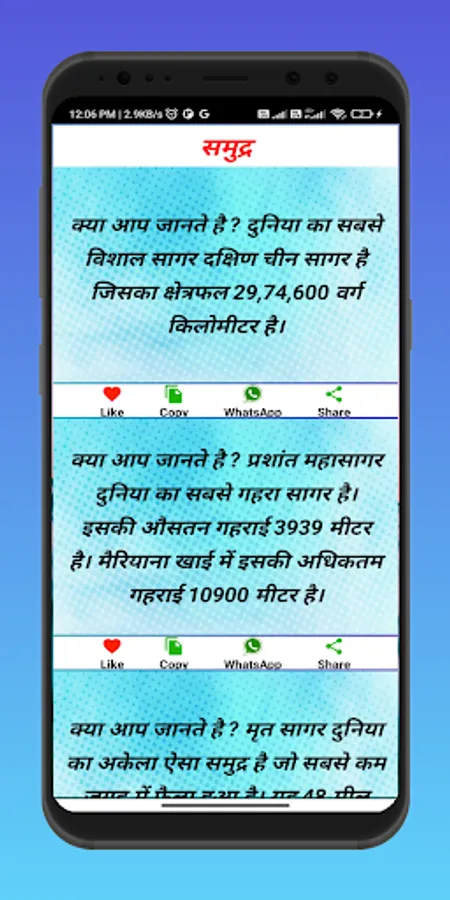 12:06 PM | 2.9KB/s
समुद्र
क्या आप जानते है ? दुनिया का सबसे
विशाल सागर दक्षिण चीन सागर है
जिसका क्षेत्रफल 29,74,600 वर्ग
किलोमीटर है।
Like Copy WhatsApp Share
क्या आप जानते है ? प्रशांत महासागर
दुनिया का सबसे गहरा सागर है।
इसकी औसतन गहराई 3939 मीटर
है। मैरियाना खाई में इसकी अधिकतम
गहराई 10900 मीटर है।
Like Copy WhatsApp Share
क्या आप जानते है ? मृत सागर दुनिया
का अकेला ऐसा समुद्र है जो सबसे कम
जगह में फैला हुआ है। यह 48 मील